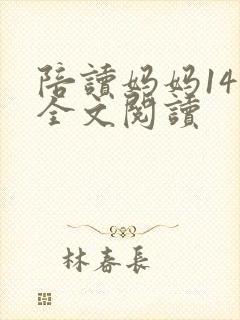 陪讀妈妈14
全文閱讀
林春長